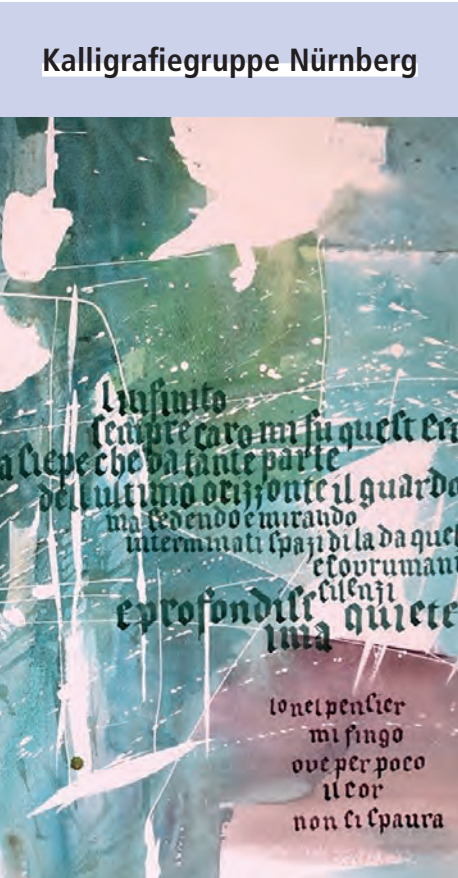 Kalligrafiegruppe Nürnberg
Linfinito
sempre caro mi fu quest er
a siepe che da tante parte
dell ultimo orizzonte il guardo
ma sedendo e mirando
interminati spazi di la da quel
e sovrumani
silenzi
e profondiss quiete
ima
Io nel pensier
mi fingo
ove per poco
il cor
non si spaura